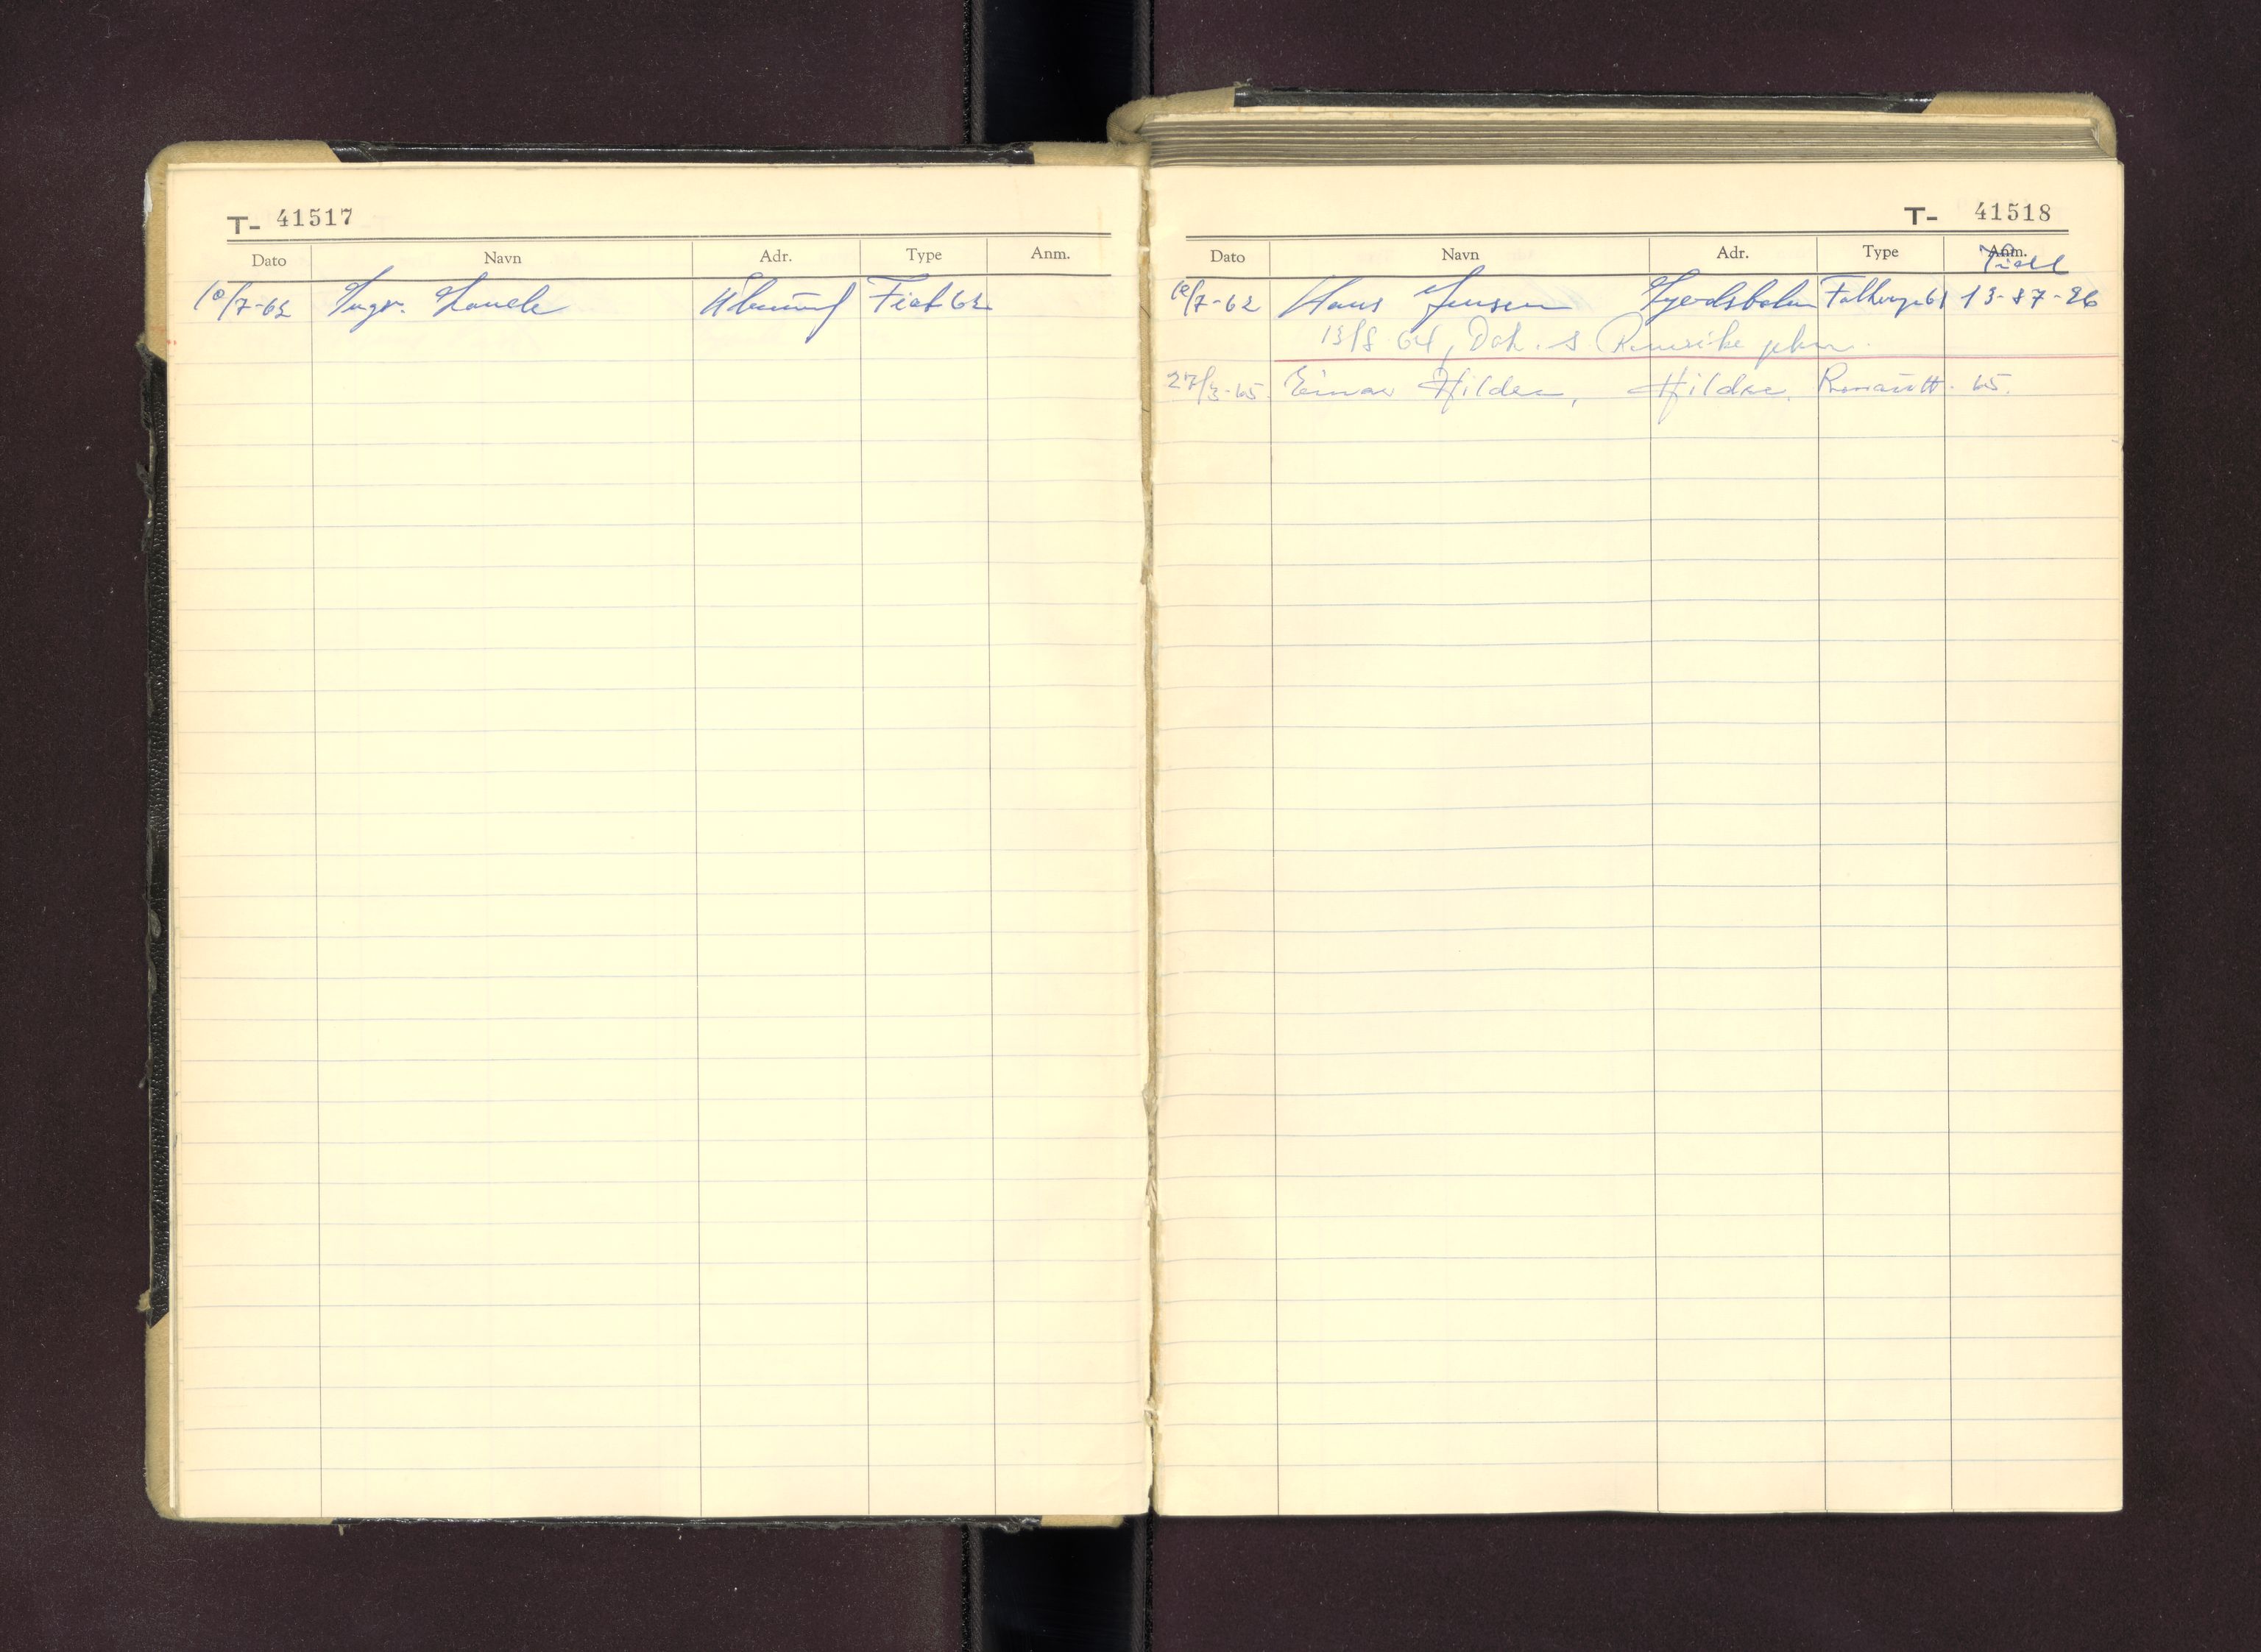 T- 41517
Dato Navn Adr. Type Anm.
10/7-62 Ingv. Fiat 62
T- 41518
Dato Navn Adr. Type Anm.
10/7-62 Hans Jensen 61 13-87-26
13/8-64, Dok. s
27/3-65. Einar Hildre, Hildre, Renault. 65.